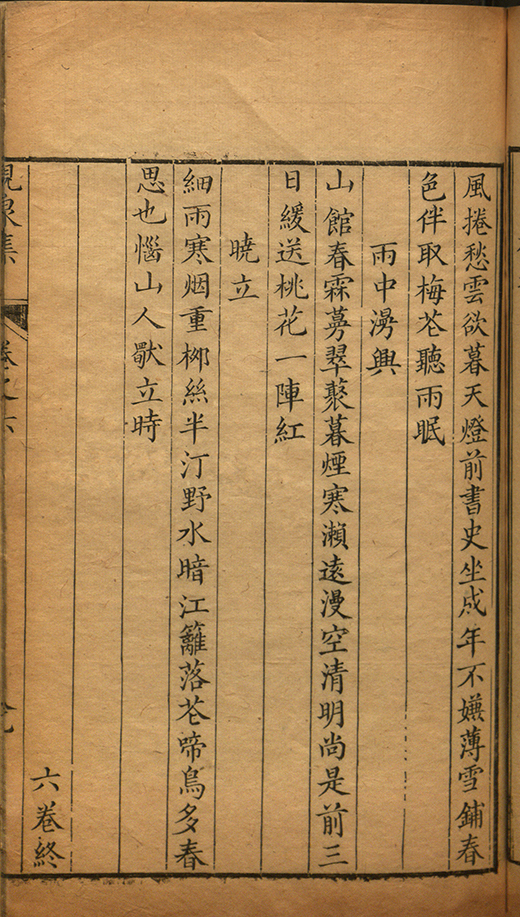 風捲愁雲欲暮天燈前書史坐成年不嫌薄雪鋪春
色伴取梅花聽雨眠
雨中漫興
山館春霖蕚翠蘩暮煙寒瀨遠漫空清明尚是前三
日緩送桃花一陣紅
曉立
細雨寒烟重柳絲半汀野水暗江籬落花啼鳥多春
思也惱山人獃立時
六卷終
集
卷之六